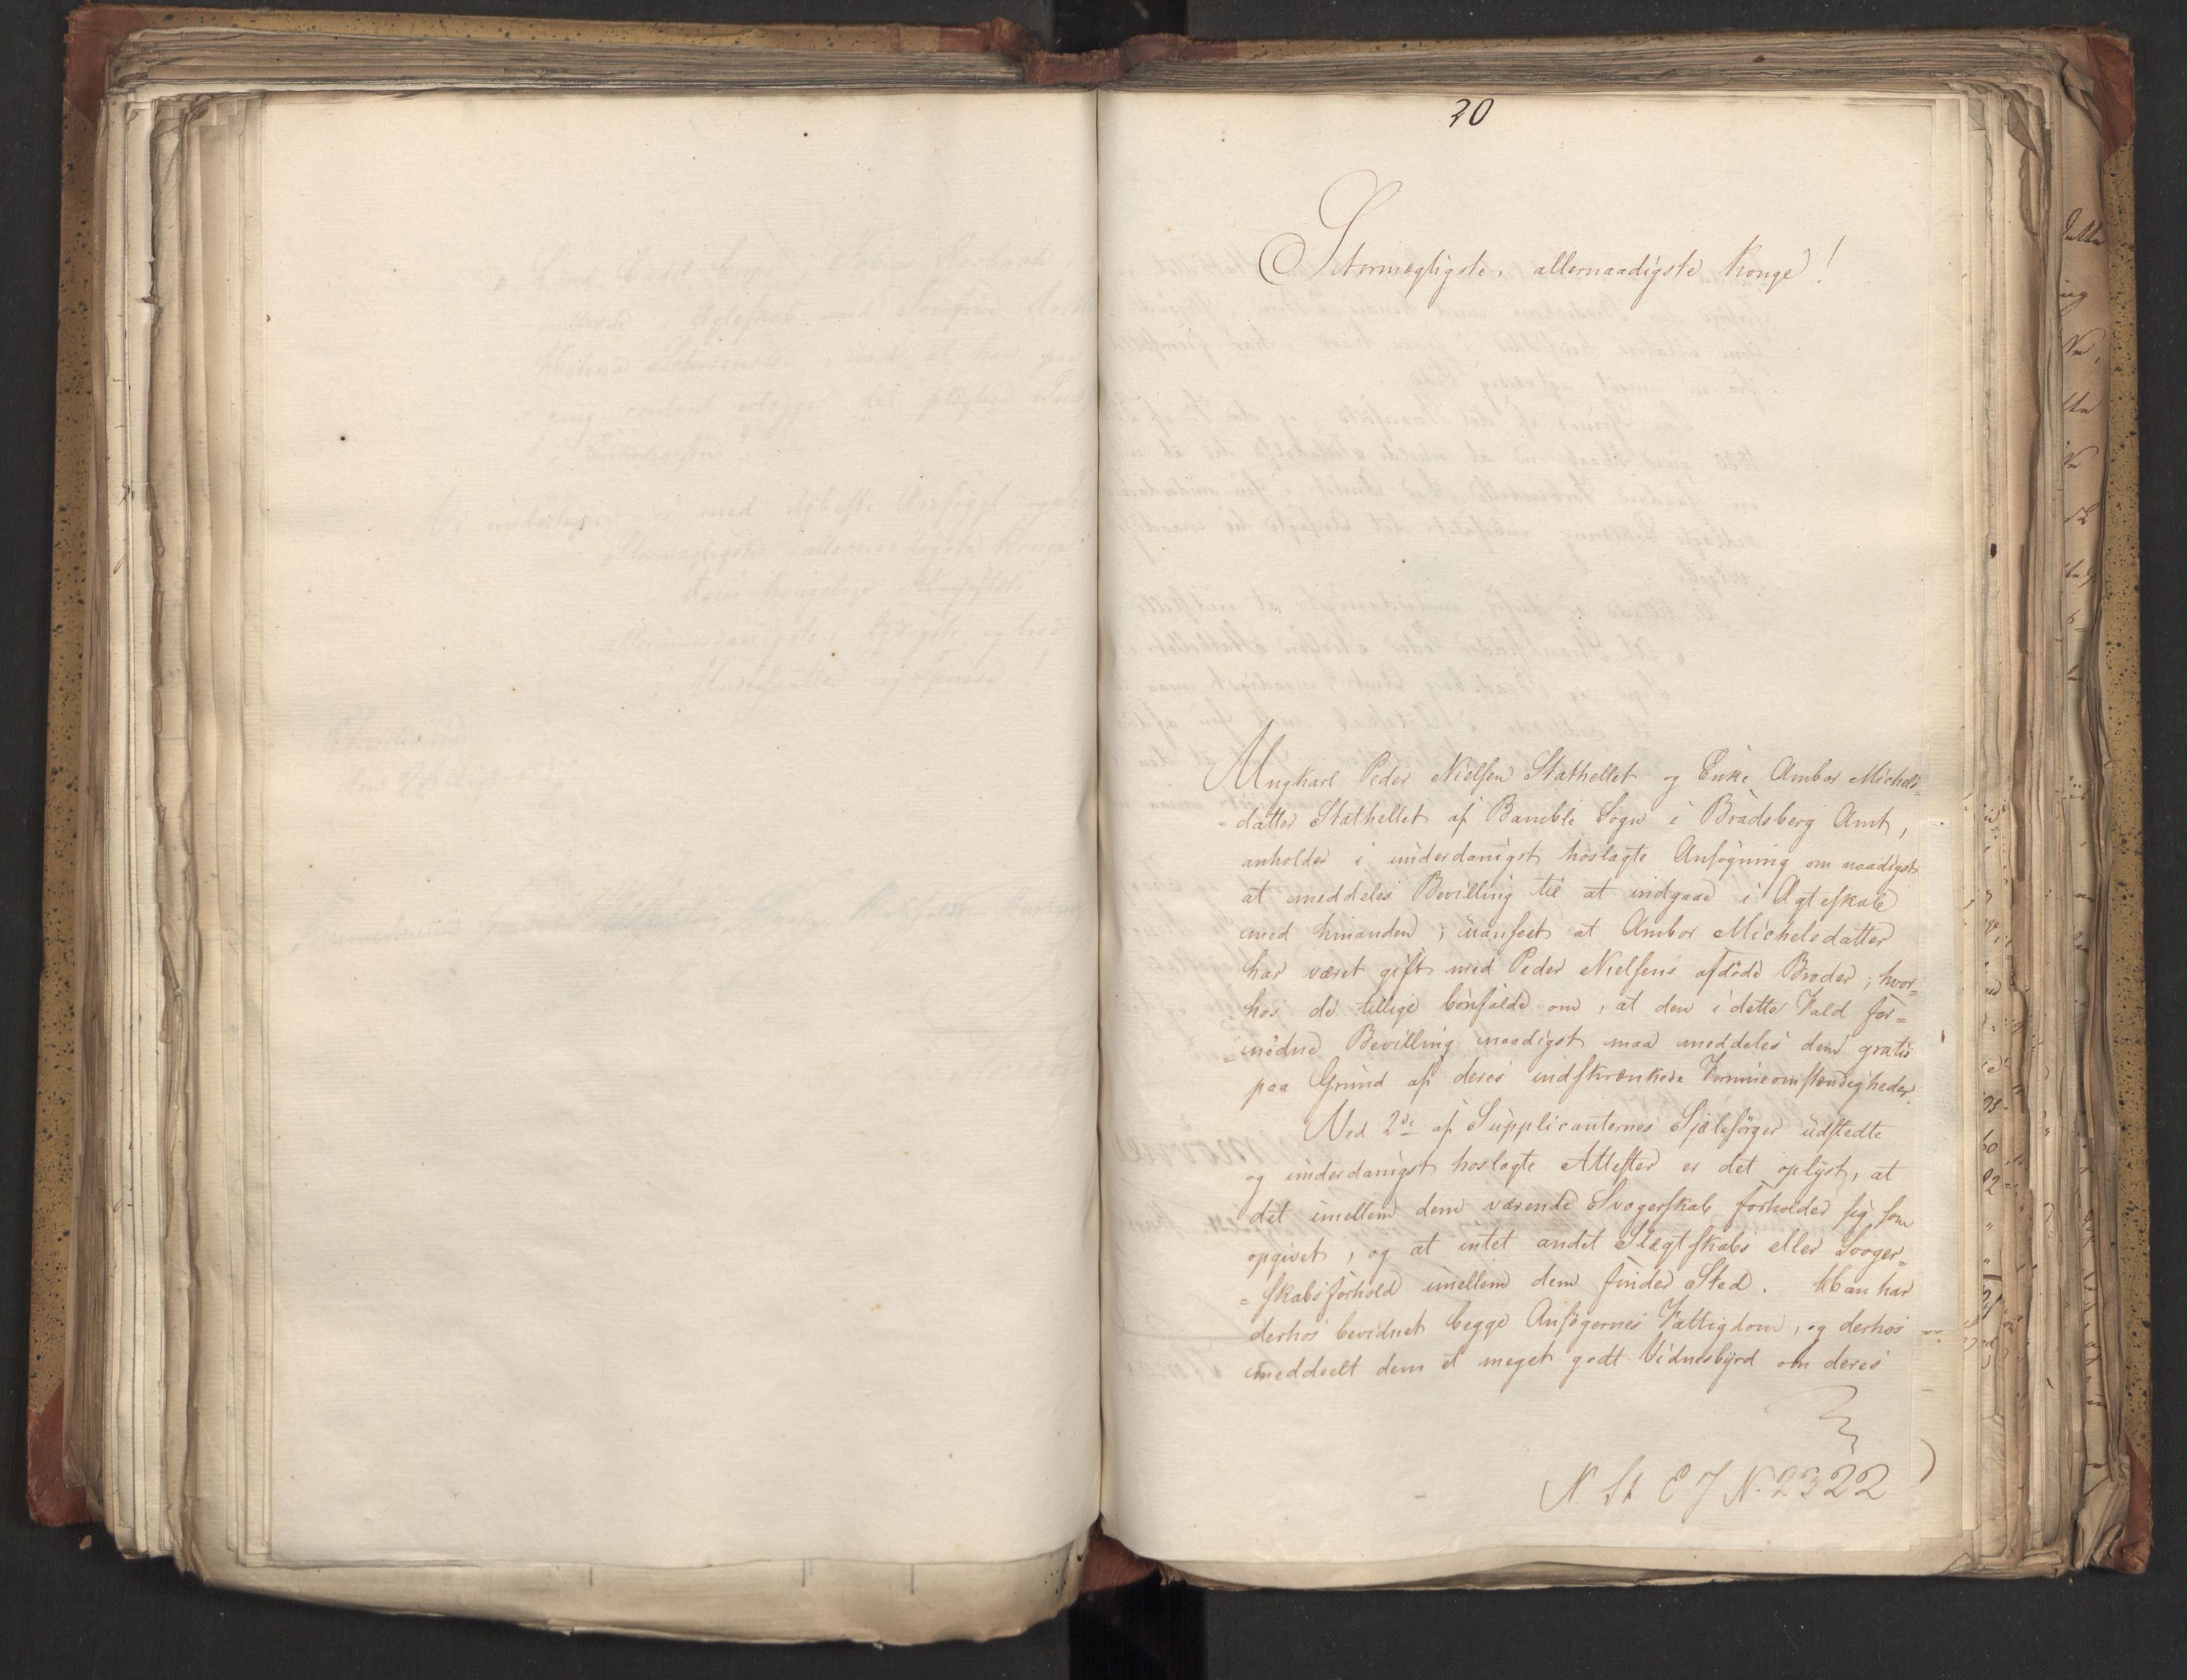 20
Stormægtigste, allernaadigste Konge!
Ungkarl Peder Nielsen Stathellet og Enke Ambor Michels-
-datter Stathellet af Bamble Sogn i Bradsberg Amt,
anholder i underdanigst hoslagte Ansøgning om naadigst
at meddeles Bevilling til at indgaae i Ægteskab
med hinanden, uanseet at Ambor Michelsdatter
har været gift med Peder Nielsens afdöde Broder; hvor-
hos de tillige bönfalde om, at den i dette Fald for-
-nödne Bevilling naadigst maa meddeles dem gratis
paa Grund af deres indskrænkede Formueomstændigheder.
Ved 2de af Supplicanternes Sjælesörger udstedte
og underdanigst hoslagte Attester er det oplyst, at
det imellem dem værende Svogerskab forholder sig som
opgivet, og at intet andet Slægtskabs eller Svoger-
-skabsforhold imellem dem finder Sted. Man har
derhos bevidnet begge Ansøgernes Fattigdom, og derhos
meddeelt dem et meget godt Vidnesbyrd om deres
N St E J N. 2322